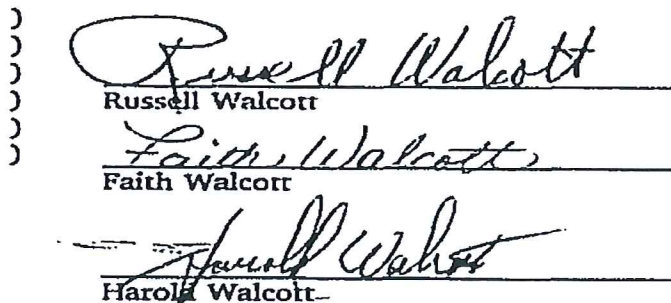 )
) Russell Walcott
) Russell Walcott
)
) Faith Walcott
) Faith Walcott
Harold Walcott
Harold Walcott